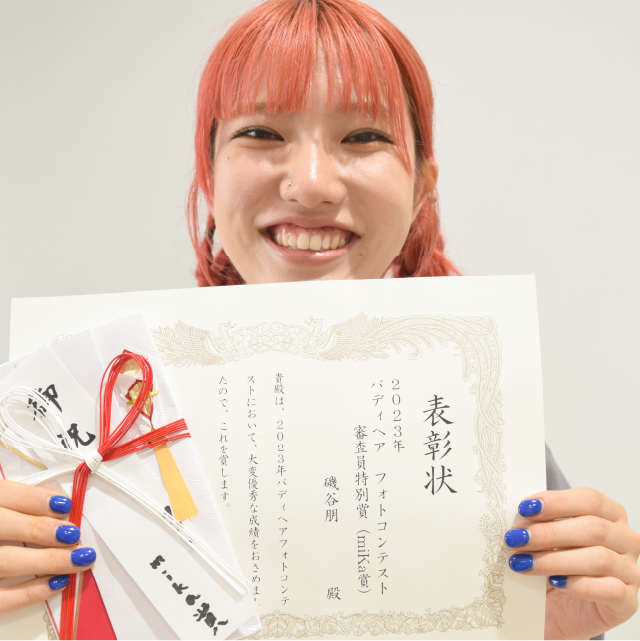 表彰状
2023年
バディヘア　フォトコンテスト
審査員特別賞（imiKa賞）
磯谷朋　殿
貴殿は、2023年バディヘアフォトコンテ
ストにおいて、大変優秀な成績をおさめま
たので、これを賞します。
御祝